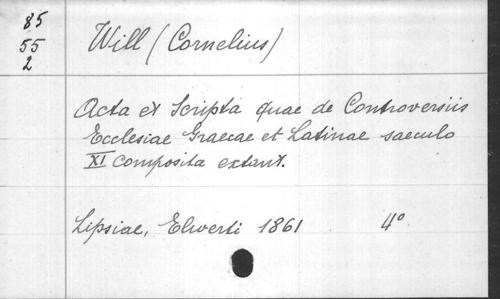 85
55
2
Will (Cornelius)
Acta et Scripta quae de Controversiis
Ecclesiae Graecae et Latinae saeculo
XI composita extant.
Lipsiae, Elwerti 1861 4°